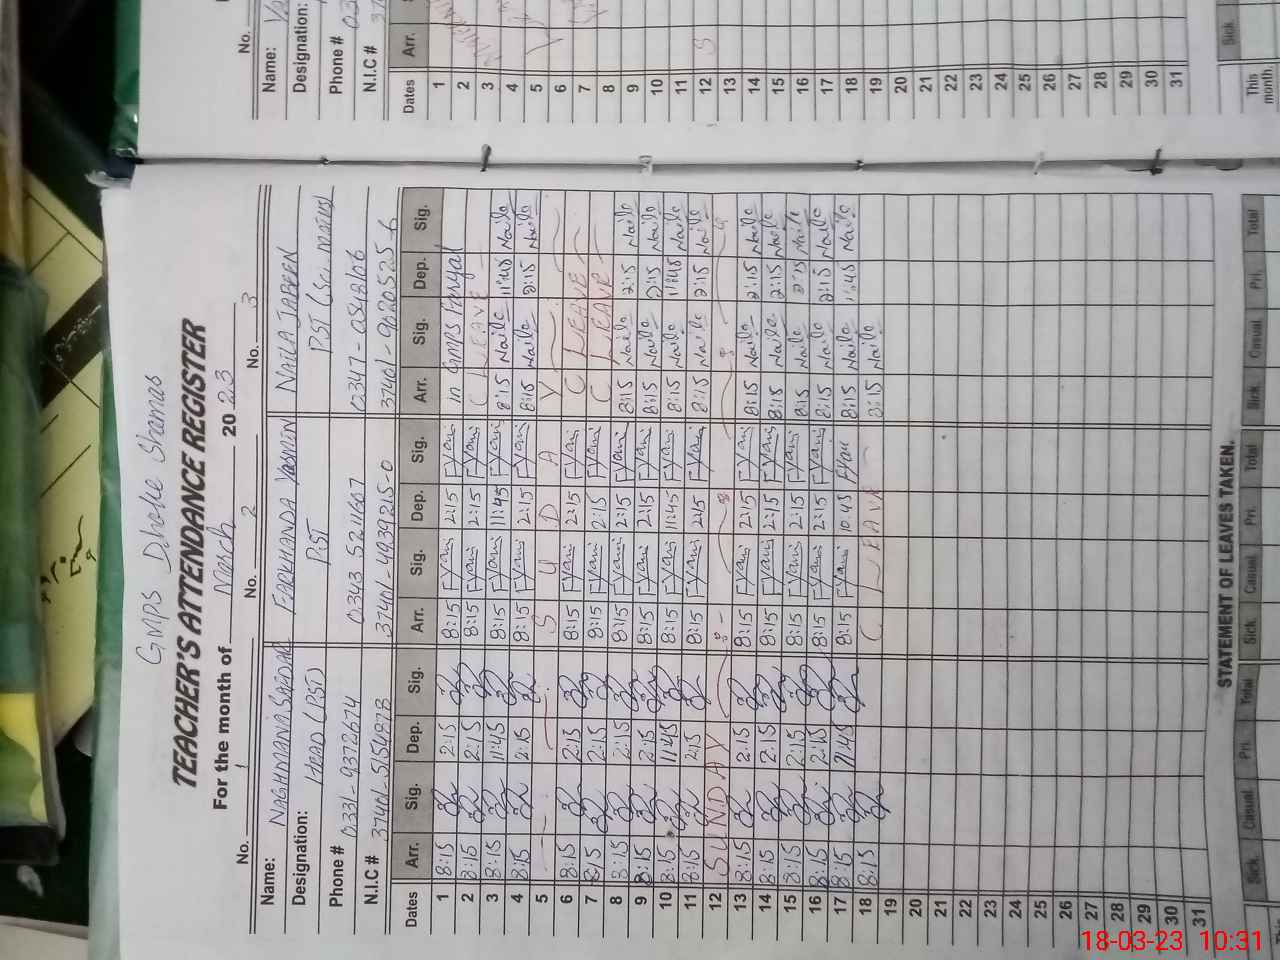 GMPS Dhoke Shamas
TEACHER'S ATTENDANCE REGISTER
For the month of March 2023
No. 1 No. 2 No. 3
Name: NAGHMANA SARDAR FARKHANDA YASMIN NAILA JABEEN
Designation: HEAD (PST) PST PST (Sci. maths)
Phone # 0331-9372674 0343 5211607
N.I.C #
Dates Arr. Sig. Dep. Sig. Arr. Sig. Dep. Sig. Arr. Sig. Dep. Sig.
1 8:15 2:15 8:15 FYasmi 2:15 FYasmi in GMPS Faryal
2 8:15 2:15 8:15 FYasmi 2:15 FYasmi C LEAVE
3 8:15 11:45 8:15 FYasmi 11:45 FYasmi 8:15 Naila 11:45 Naila
4 8:15 2:15 8:15 FYasmi 2:15 FYasmi 8:15 Naila 2:15 Naila
5 S U D A Y
6 8:15 2:15 8:15 FYasmi 2:15 FYasmi C LEAVE
7 8:15 2:15 8:15 FYasmi 2:15 FYasmi C LEAVE
8 8:15 2:15 8:15 FYasmi 2:15 FYasmi 8:15 Naila 2:15 Naila
9 8:15 2:15 8:15 FYasmi 2:15 FYasmi 8:15 Naila 2:15 Naila
10 8:15 11:45 8:15 FYasmi 11:45 FYasmi 8:15 Naila 11:45 Naila
11 8:15 2:15 8:15 FYasmi 2:15 FYasmi 8:15 Naila 2:15 Naila
12 SUNDAY
13 8:15 2:15 8:15 FYasmi 2:15 FYasmi 8:15 Naila 2:15 Naila
14 8:15 2:15 8:15 FYasmi 2:15 FYasmi 8:15 Naila 2:15 Naila
15 8:15 2:15 8:15 FYasmi 2:15 FYasmi 8:15 Naila 2:15 Naila
16 8:15 2:15 8:15 FYasmi 2:15 FYasmi 8:15 Naila 2:15 Naila
17 8:15 8:15 FYasmi 10:45 FYasmi 8:15 Naila 11:45 Naila
18 8:15 C LEAVE 8:15 Naila
19
20
21
22
23
24
25
26
27
28
29
30
31
STATEMENT OF LEAVES TAKEN.
Sick. Casual Pri. Total Sick. Casual Pri. Total Sick. Casual Pri. Total
No.
Name:
Designation:
Phone #
N.I.C #
Dates Arr.
1
2
3
4
5
6
7
8
9
10
11
12 S
13
14
15
16
17
18
19
20
21
22
23
24
25
26
27
28
29
30
31
Sick.
This month.
18-03-23 10:31